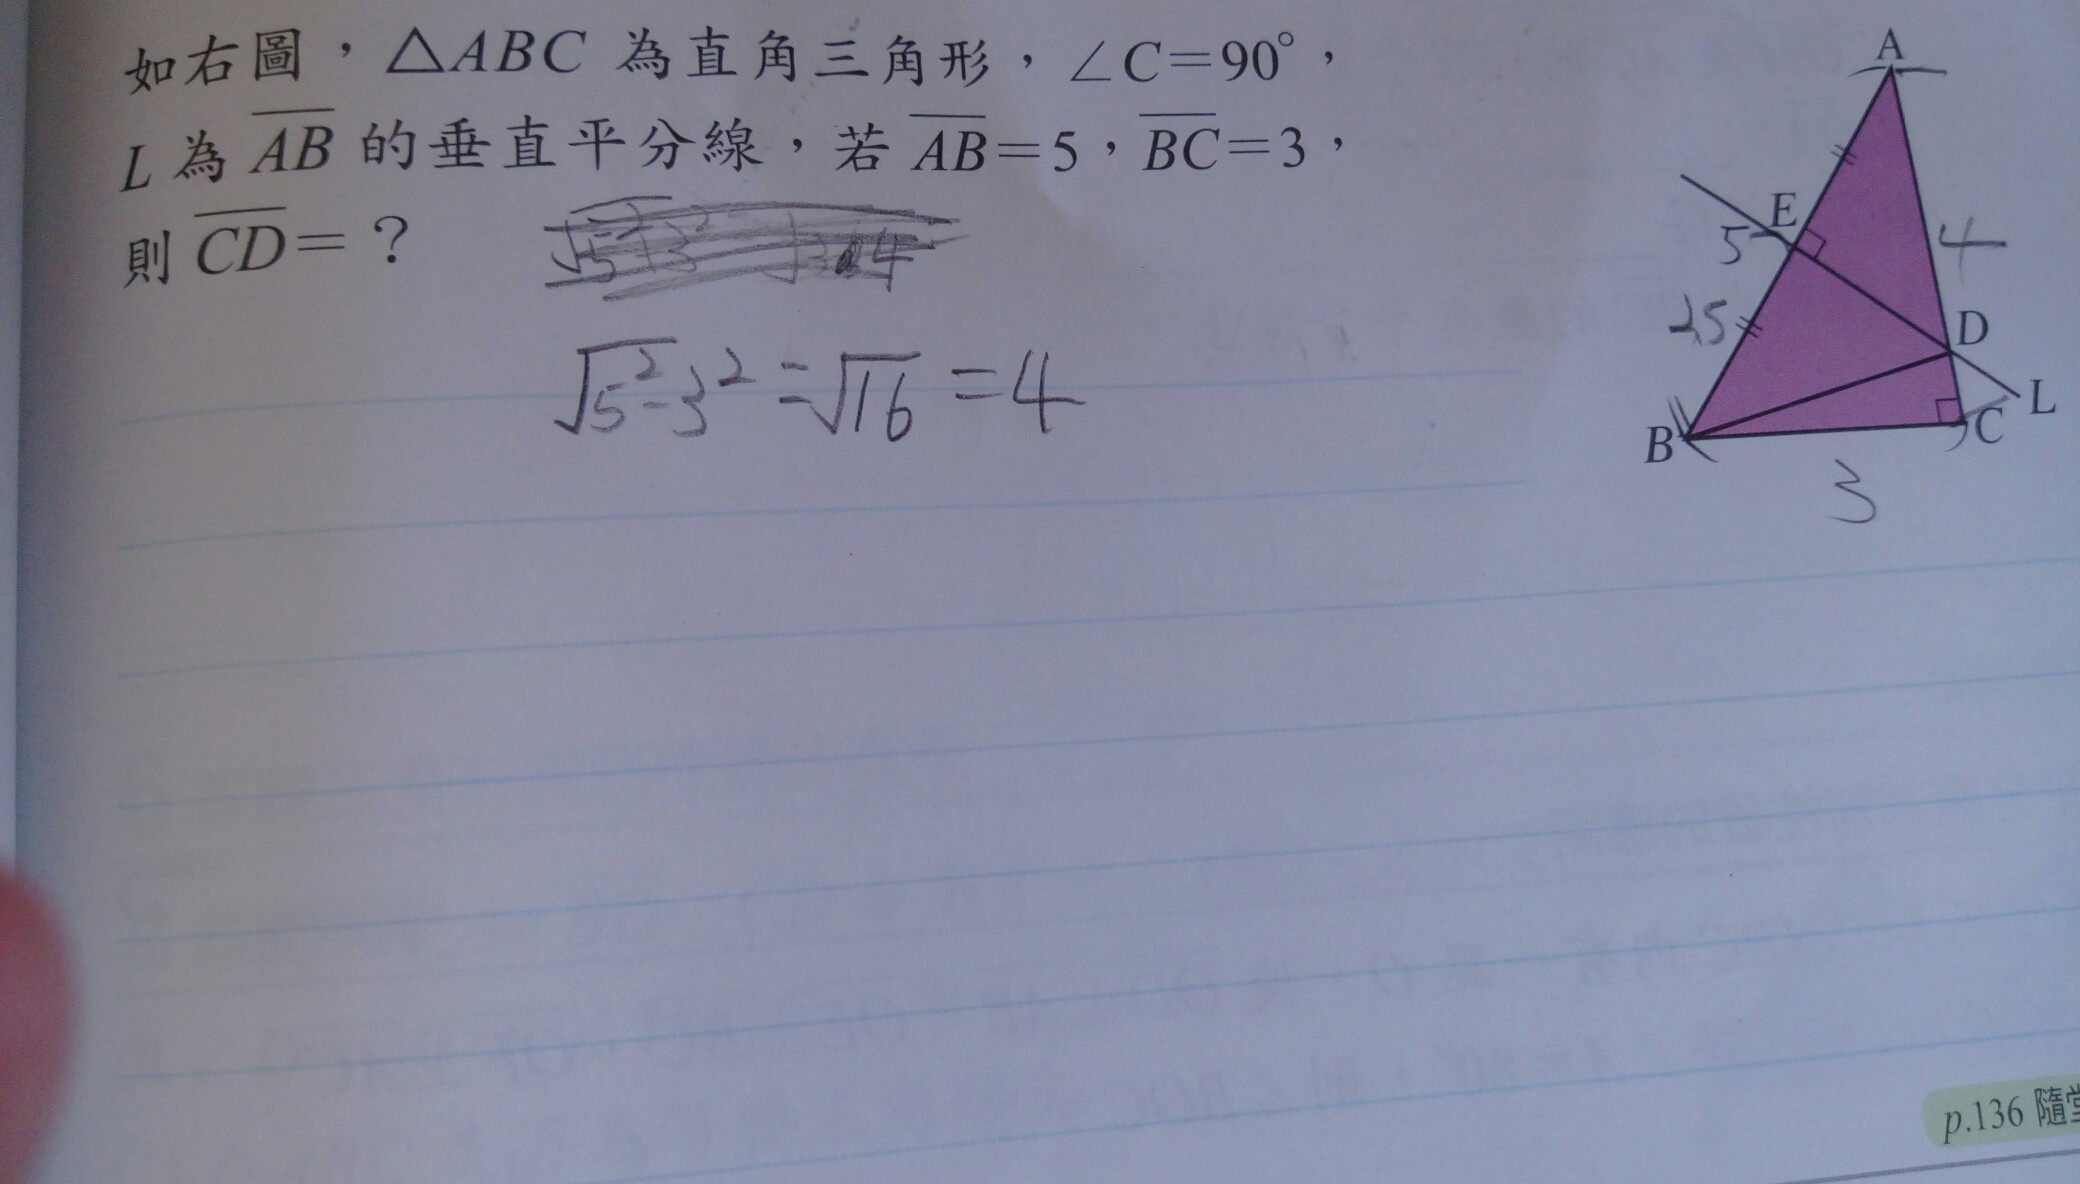 如右圖，△ABC 為直角三角形，∠C=90°，
L 為 AB 的垂直平分線，若 AB=5，BC=3，
則 CD=？
√5²-3² =√16 =4
A
E
5
4
2.5
D
L
B
C
3
p.136 隨堂